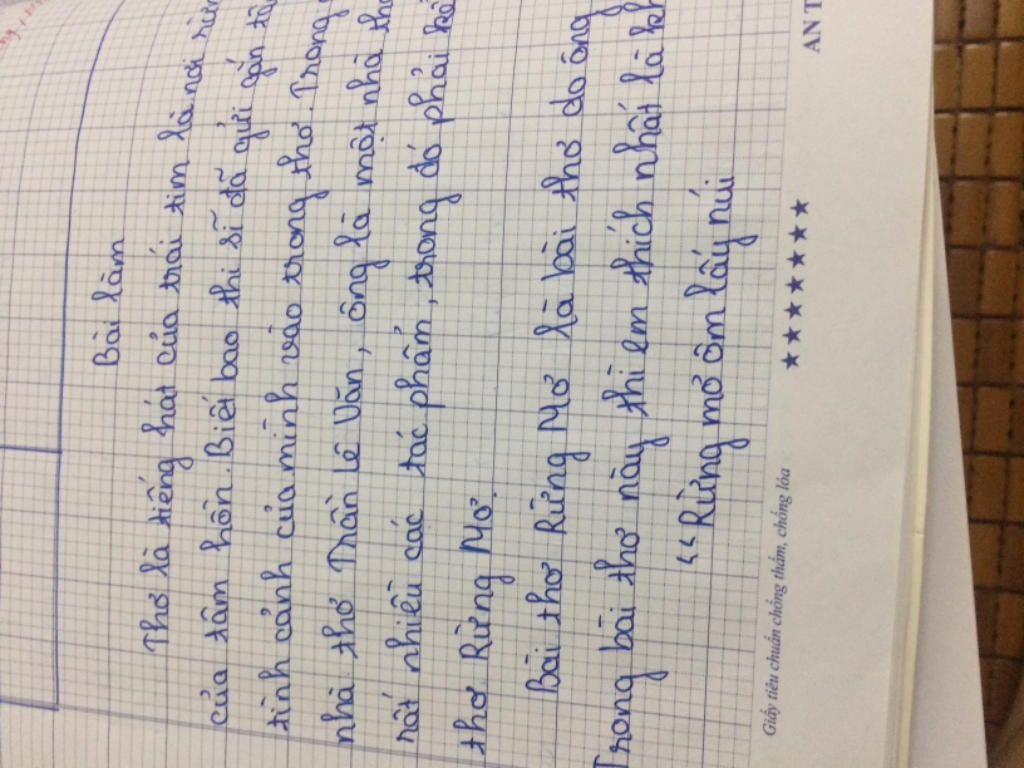 Bài làm
Thơ là tiếng hát của trái tim là nơi
của tâm hồn. Biết bao thi sĩ đã gửi gắn
tình cảnh của mình vào trong thơ. Trong
nhà thơ Trần Lê Văn, ông là một nhà
rất nhiều các tác phẩm, trong đó phải
thơ Rừng Mơ.
Bài thơ Rừng Mơ là bài thơ do ông
Trong bài thơ này thì em thích nhất là
“Rừng mơ ôm lấy núi
Giấy tiêu chuẩn chống thấm, chống lóa
★★★★★★★
AN T